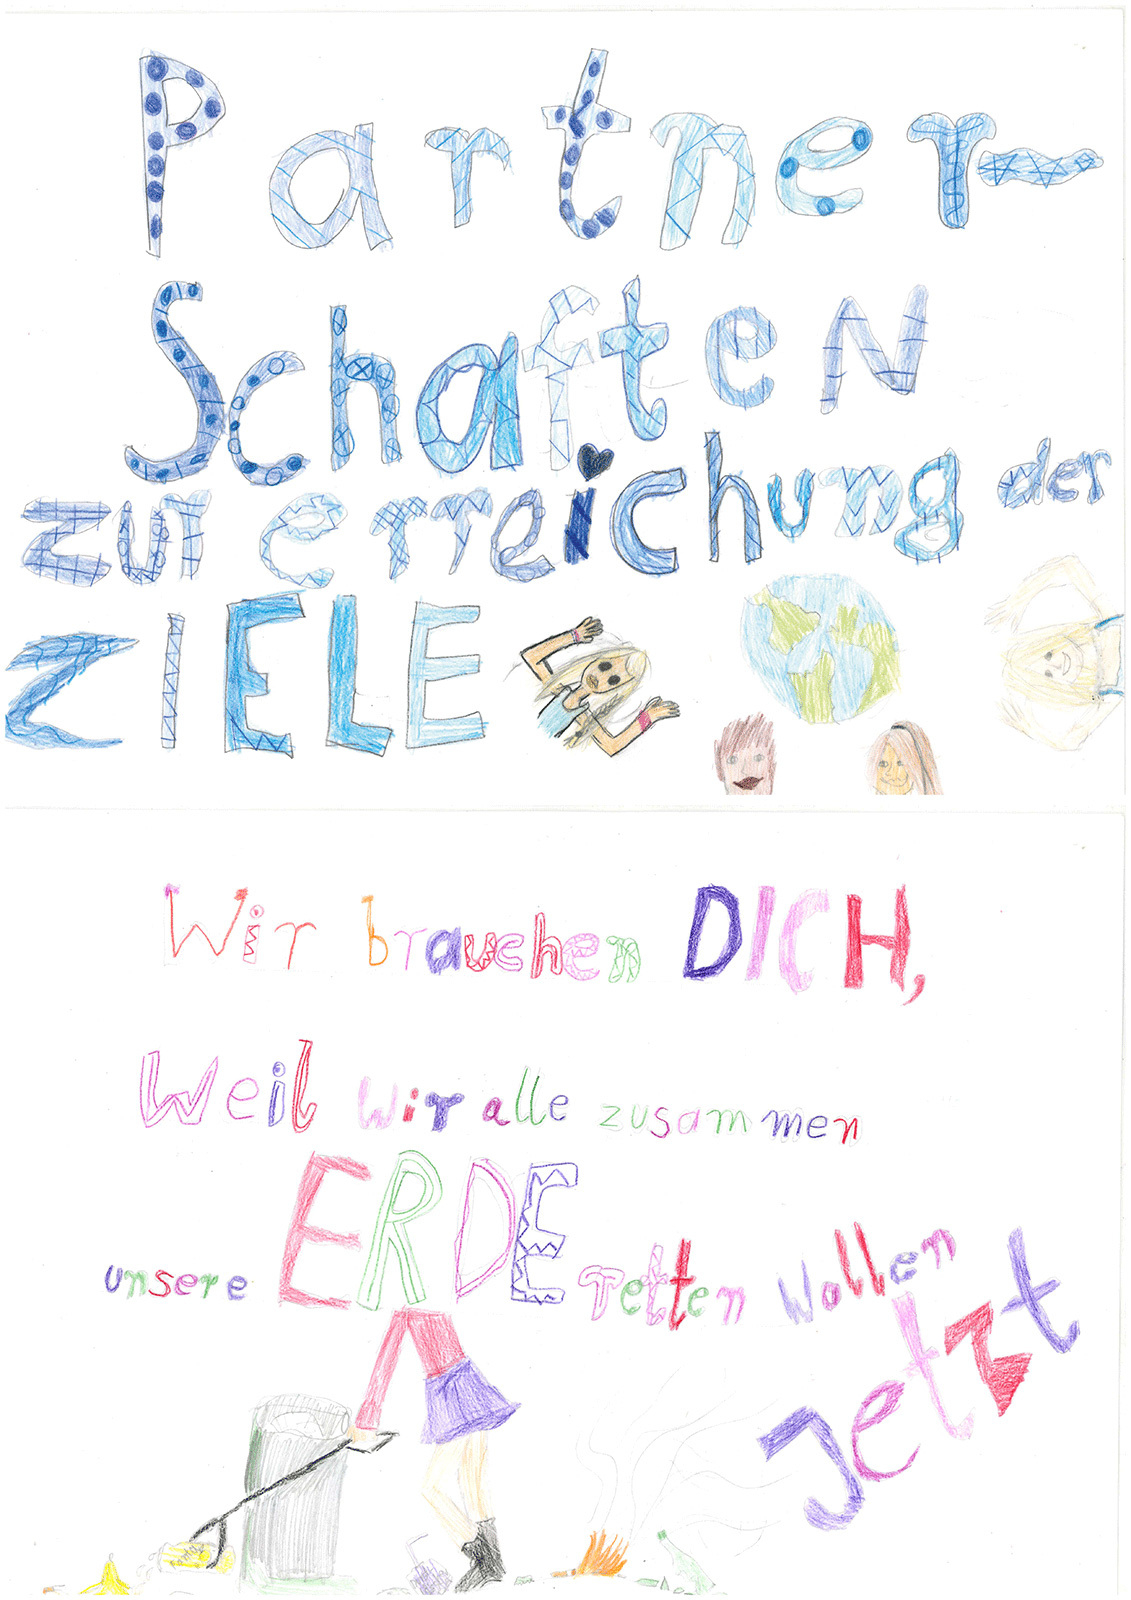 Partner-
Schaften
zur erreichung der
ZIELE
Wir brauchen DICH,
Weil wir alle zusammen
unsere ERDE retten wollen
Jetzt